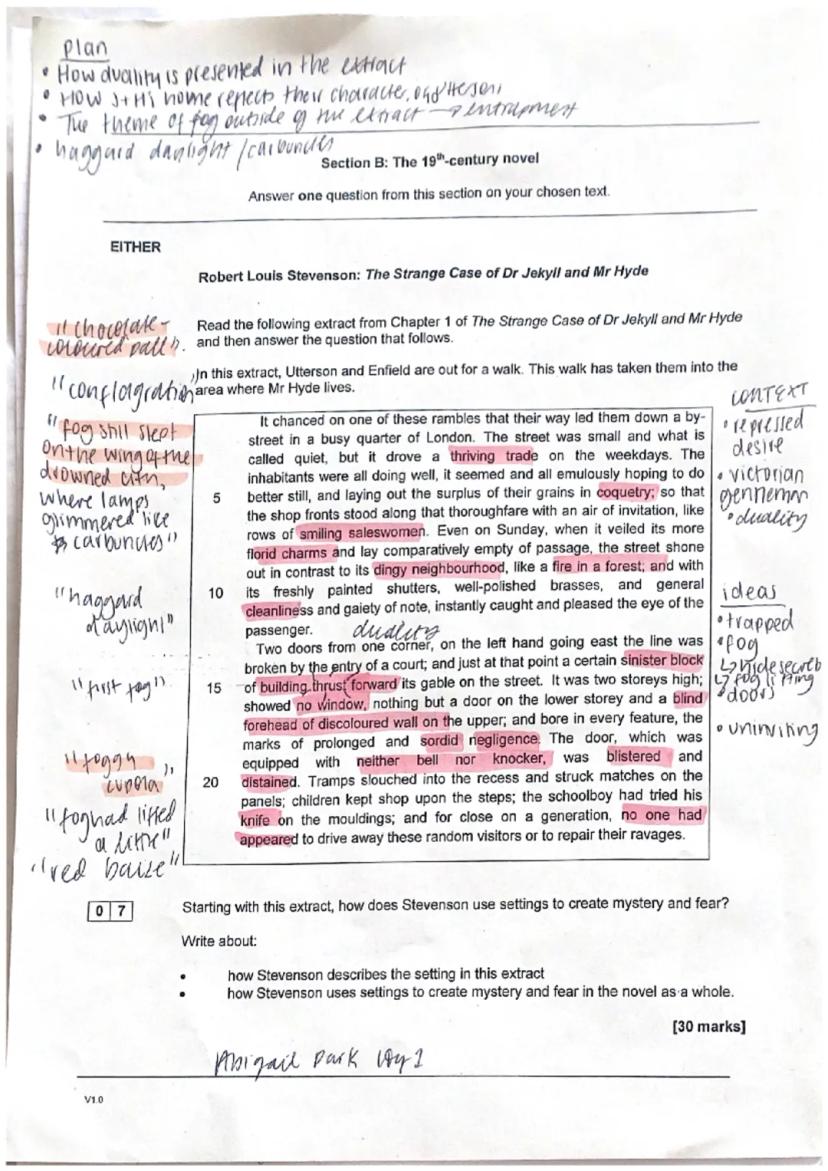 plan
• How duality is presented in the extract
• How J + H's home reflects their character,
• The theme of fog outside of the extract → entrapment
• haggard daylight / carbuncles
Section B: The 19th-century novel
Answer one question from this section on your chosen text.
EITHER
Robert Louis Stevenson: The Strange Case of Dr Jekyll and Mr Hyde
Read the following extract from Chapter 1 of The Strange Case of Dr Jekyll and Mr Hyde
and then answer the question that follows.
In this extract, Utterson and Enfield are out for a walk. This walk has taken them into the
area where Mr Hyde lives.
"chocolate-
coloured pall".
"conflagration
"fog still slept
on the wing of the
drowned city,
where lamps
glimmered like
carbuncles"
"haggard
daylight"
"first fog"
"foggy
cupola",
"fog had lifted
a little"
"red baize"
It chanced on one of these rambles that their way led them down a by-
street in a busy quarter of London. The street was small and what is
called quiet, but it drove a thriving trade on the weekdays. The
inhabitants were all doing well, it seemed and all emulously hoping to do
5 better still, and laying out the surplus of their grains in coquetry; so that
the shop fronts stood along that thoroughfare with an air of invitation, like
rows of smiling saleswomen. Even on Sunday, when it veiled its more
florid charms and lay comparatively empty of passage, the street shone
out in contrast to its dingy neighbourhood, like a fire in a forest; and with
10 its freshly painted shutters, well-polished brasses, and general
cleanliness and gaiety of note, instantly caught and pleased the eye of the
passenger.
duality
Two doors from one corner, on the left hand going east the line was
broken by the entry of a court; and just at that point a certain sinister block
15 of building thrust forward its gable on the street. It was two storeys high;
showed no window, nothing but a door on the lower storey and a blind
forehead of discoloured wall on the upper; and bore in every feature, the
marks of prolonged and sordid negligence. The door, which was
equipped with neither bell nor knocker, was blistered and
20 distained. Tramps slouched into the recess and struck matches on the
panels; children kept shop upon the steps; the schoolboy had tried his
knife on the mouldings; and for close on a generation, no one had
appeared to drive away these random visitors or to repair their ravages.
CONTEXT
• repressed
desire
• victorian
gentleman
• duality
ideas
• trapped
• fog
↳ hide secrets
↳ fog lifting
• doors
• uninviting
0 7
Starting with this extract, how does Stevenson use settings to create mystery and fear?
Write about:
• how Stevenson describes the setting in this extract
• how Stevenson uses settings to create mystery and fear in the novel as a whole.
[30 marks]
Abigail Park
V1.0